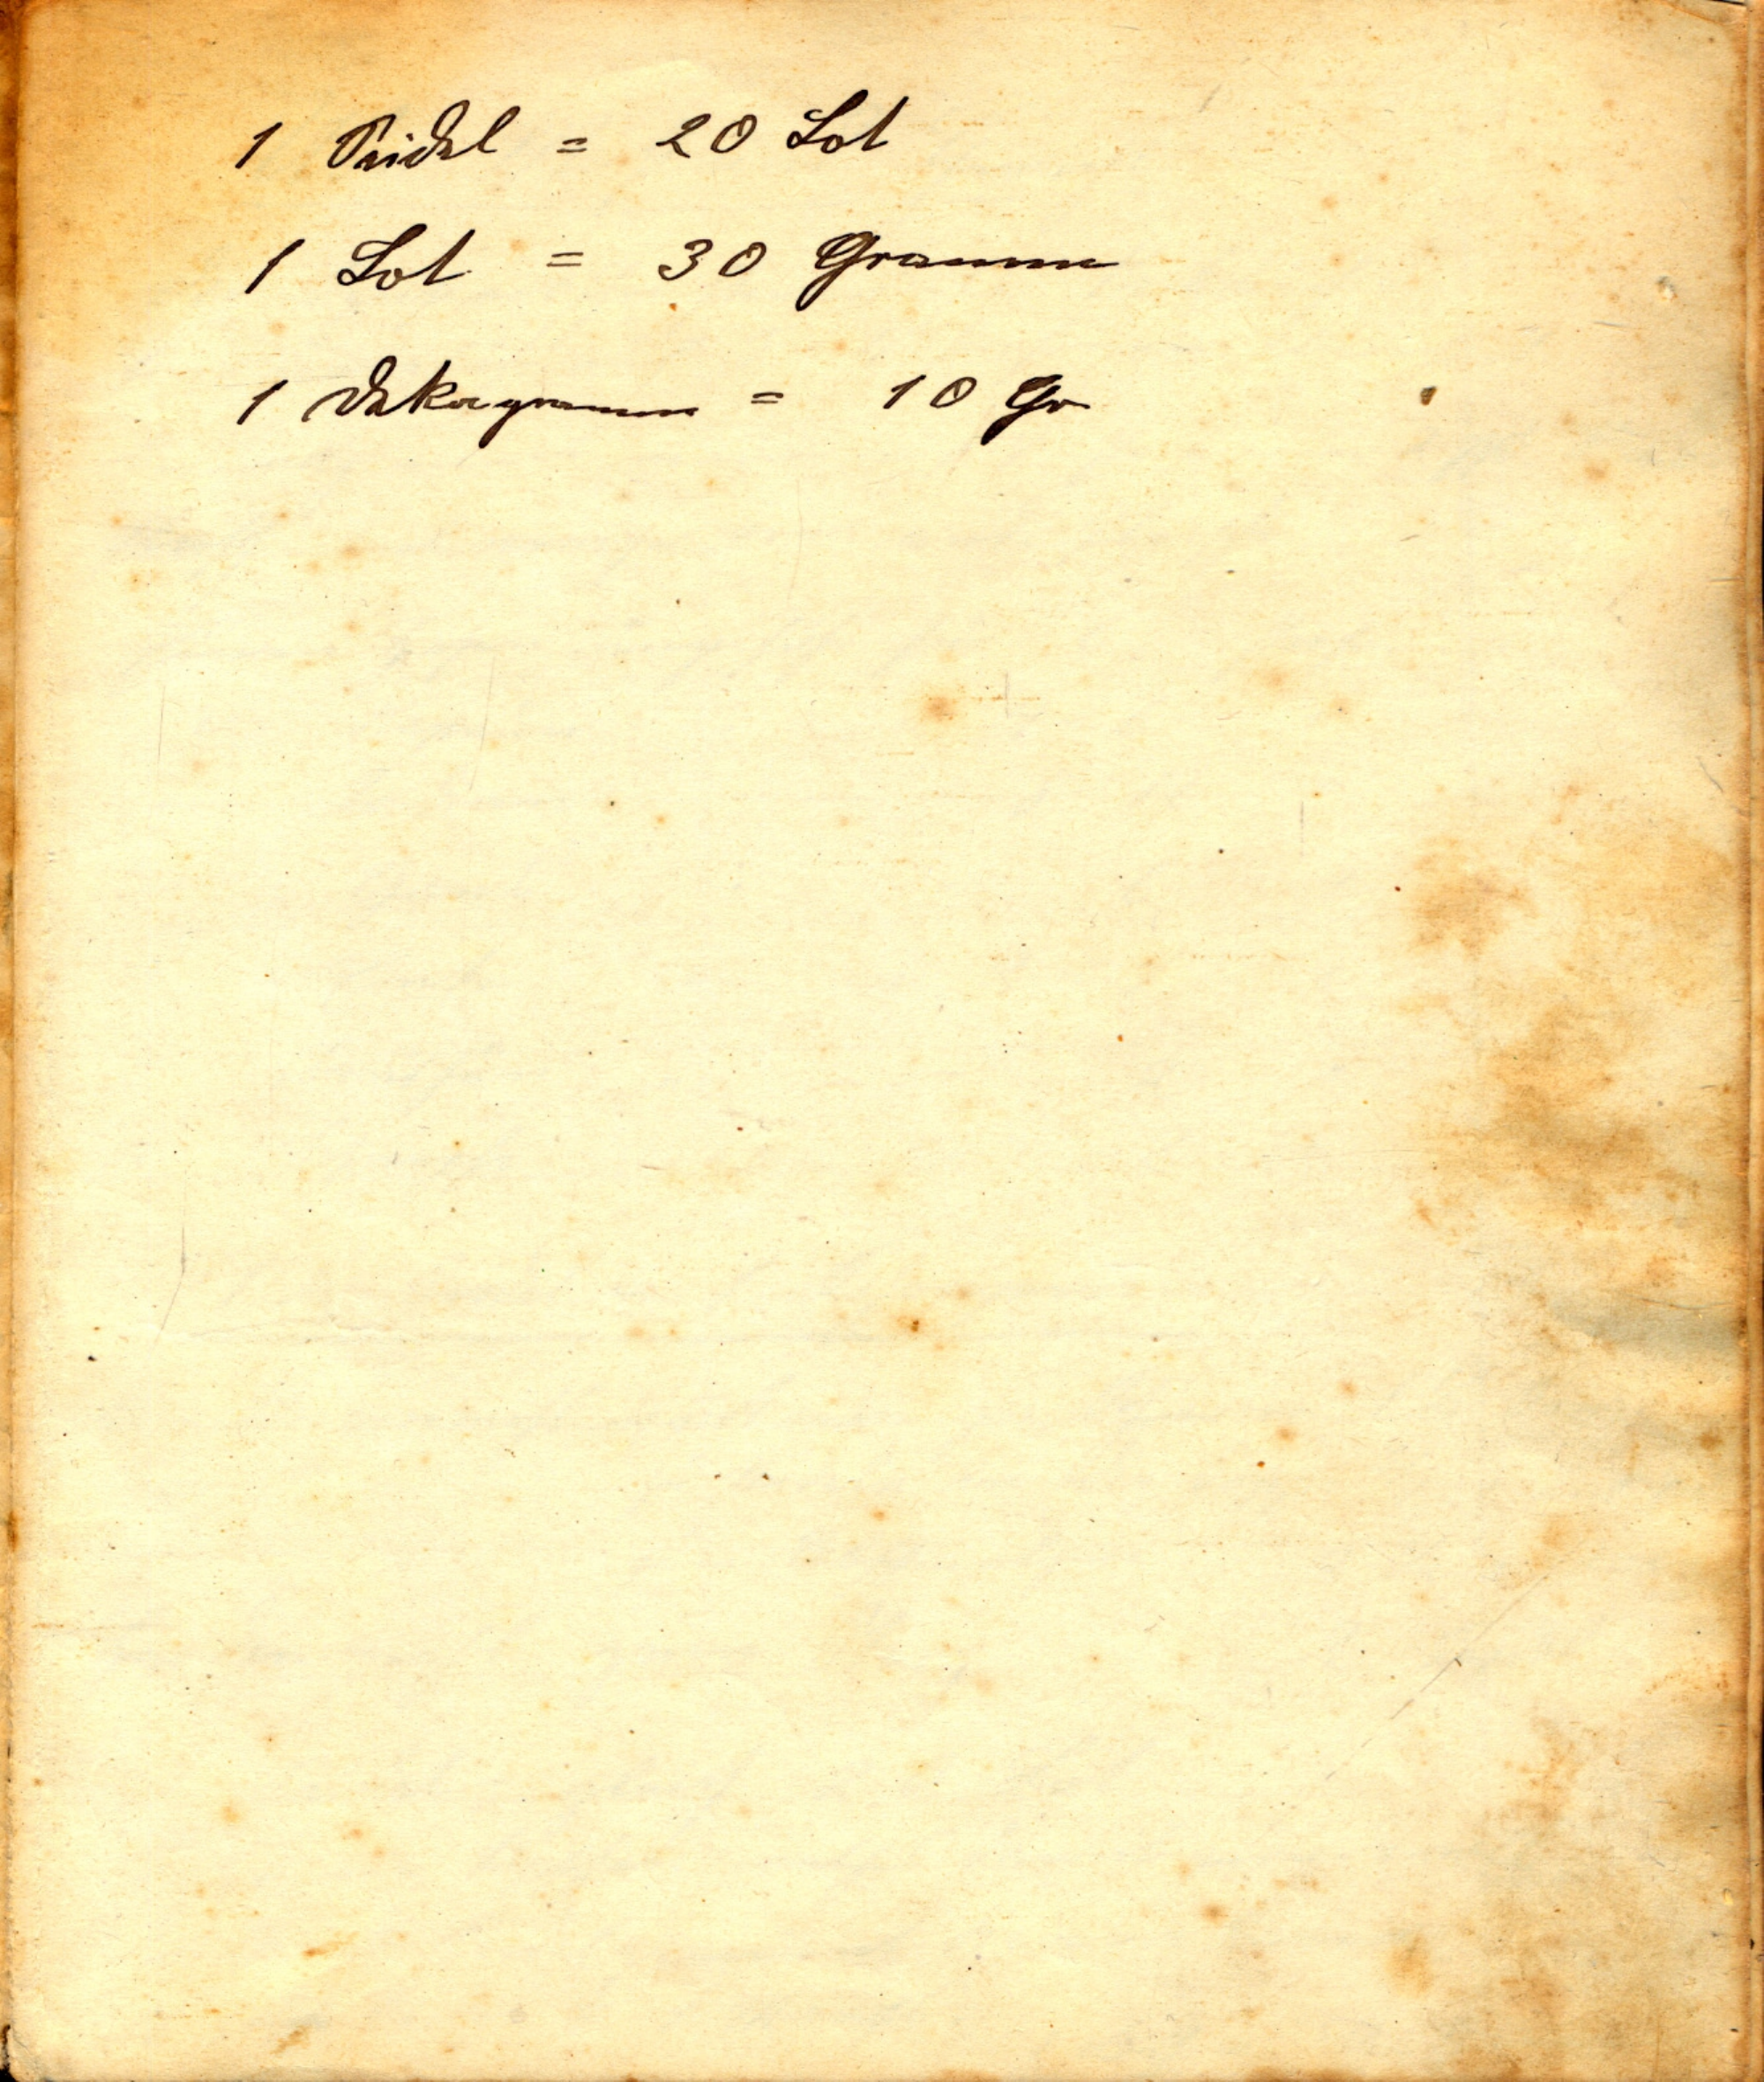 1 Seidel = 20 Lot
1 Lot = 30 Gramm
1 Dekagramm = 10 Gr